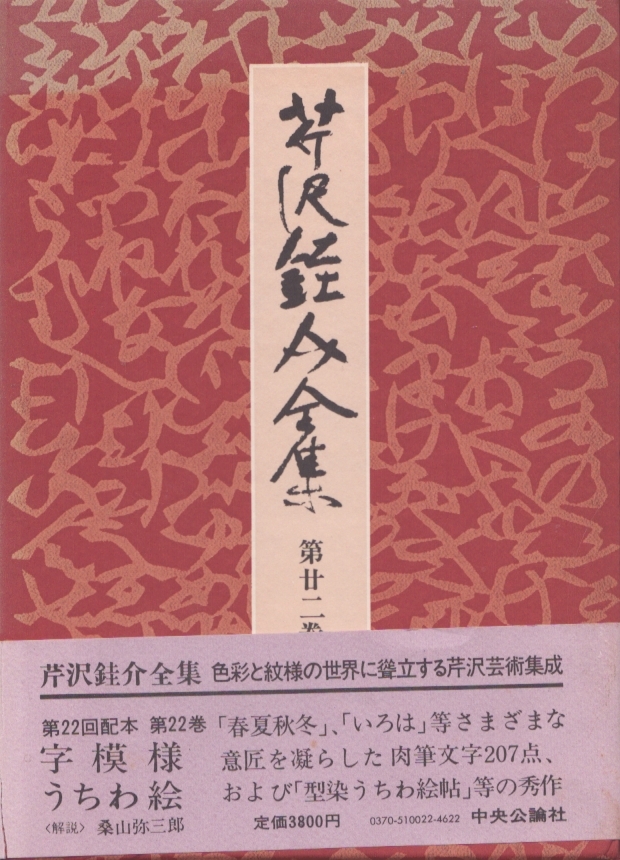 芹沢銈介全集
第廿二巻
芹沢銈介全集 色彩と紋様の世界に聳立する芹沢芸術集成
第22回配本 第22巻
字模様
うちわ絵
〈解説〉 桑山弥三郎
「春夏秋冬」、「いろは」等さまざまな
意匠を凝らした肉筆文字207点、
および「型染うちわ絵帖」等の秀作
定価3800円 0370-510022-4622 中央公論社